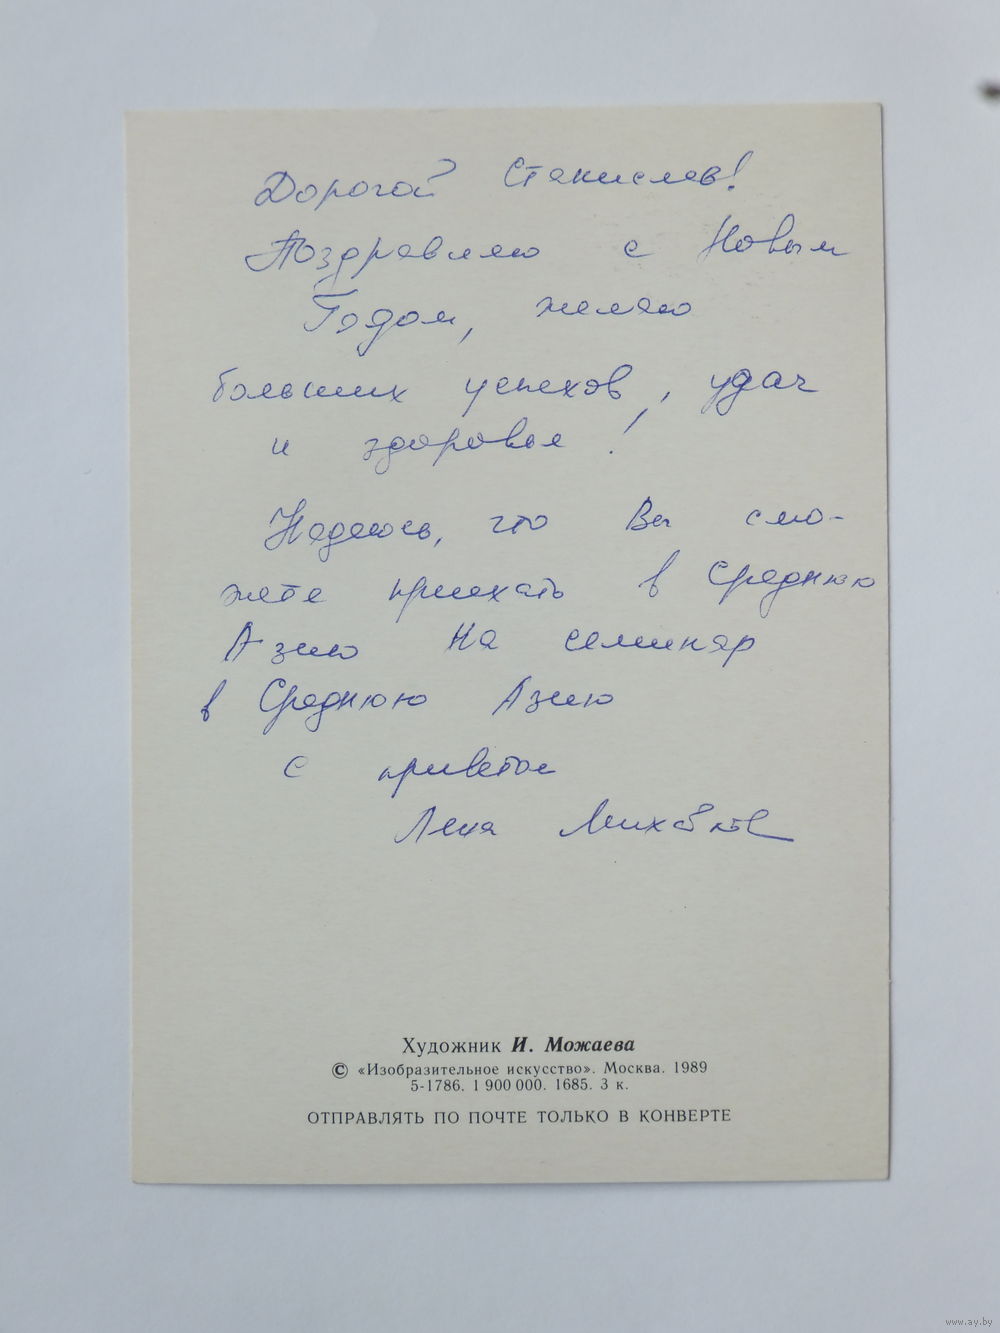 Дорогой Станислав!
Поздравляю с Новым
Годом, желаю
больших успехов, удач
и здоровья!
Надеюсь, что Вы смо-
жете приехать в Среднюю
Азию на семинар
в Среднюю Азию
с приветом
Лена
Художник И. Можаева
© «Изобразительное искусство». Москва. 1989
5-1786. 1 900 000. 1685. 3 к.
ОТПРАВЛЯТЬ ПО ПОЧТЕ ТОЛЬКО В КОНВЕРТЕ
www.ay.by